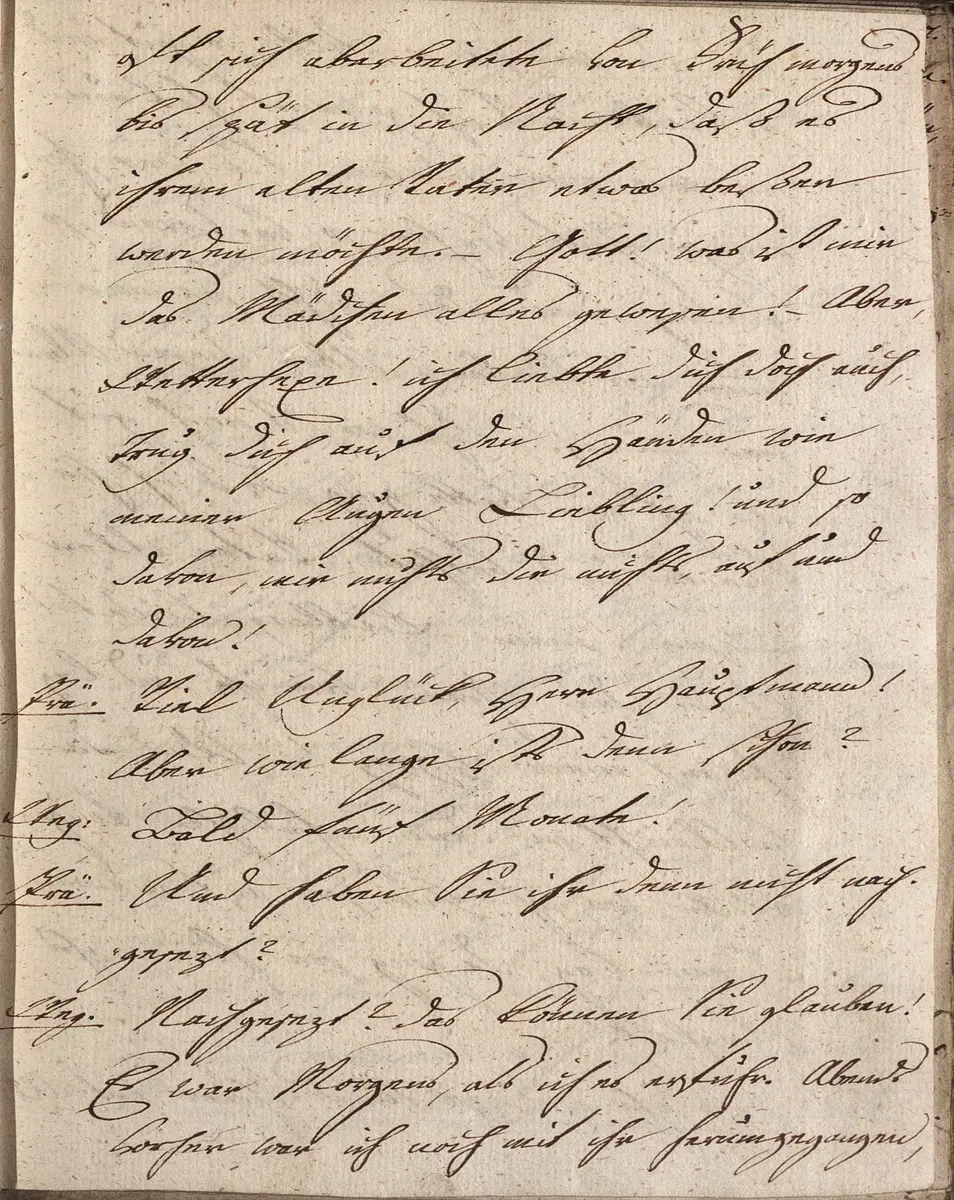 oft sich abarbeitete von Früh morgens
bis spät in die Nacht, daß es
ihrem alten Vater etwas beßer
werden möchte. – Gott! was ist mir
das Mädchen alles gewesen! – Aber,
Wetterhexe! ich liebte dich doch auch,
trug dich auf den Händen wie
meiner Augen Liebling! und so
davon, mir nichts dir nichts, auf und
davon!
Prä. Viel Unglück, Herr Hauptmann!
Aber wie lange ists denn schon?
Weg: Bald fünf Monate!
Prä. Und haben Sie ihr denn nicht nach-
gesezt?
Weg. Nachgesezt? das können Sie glauben!
Es war Morgens, als ich es erfuhr. Abends
vorher war ich noch mit ihr herumgegangen,